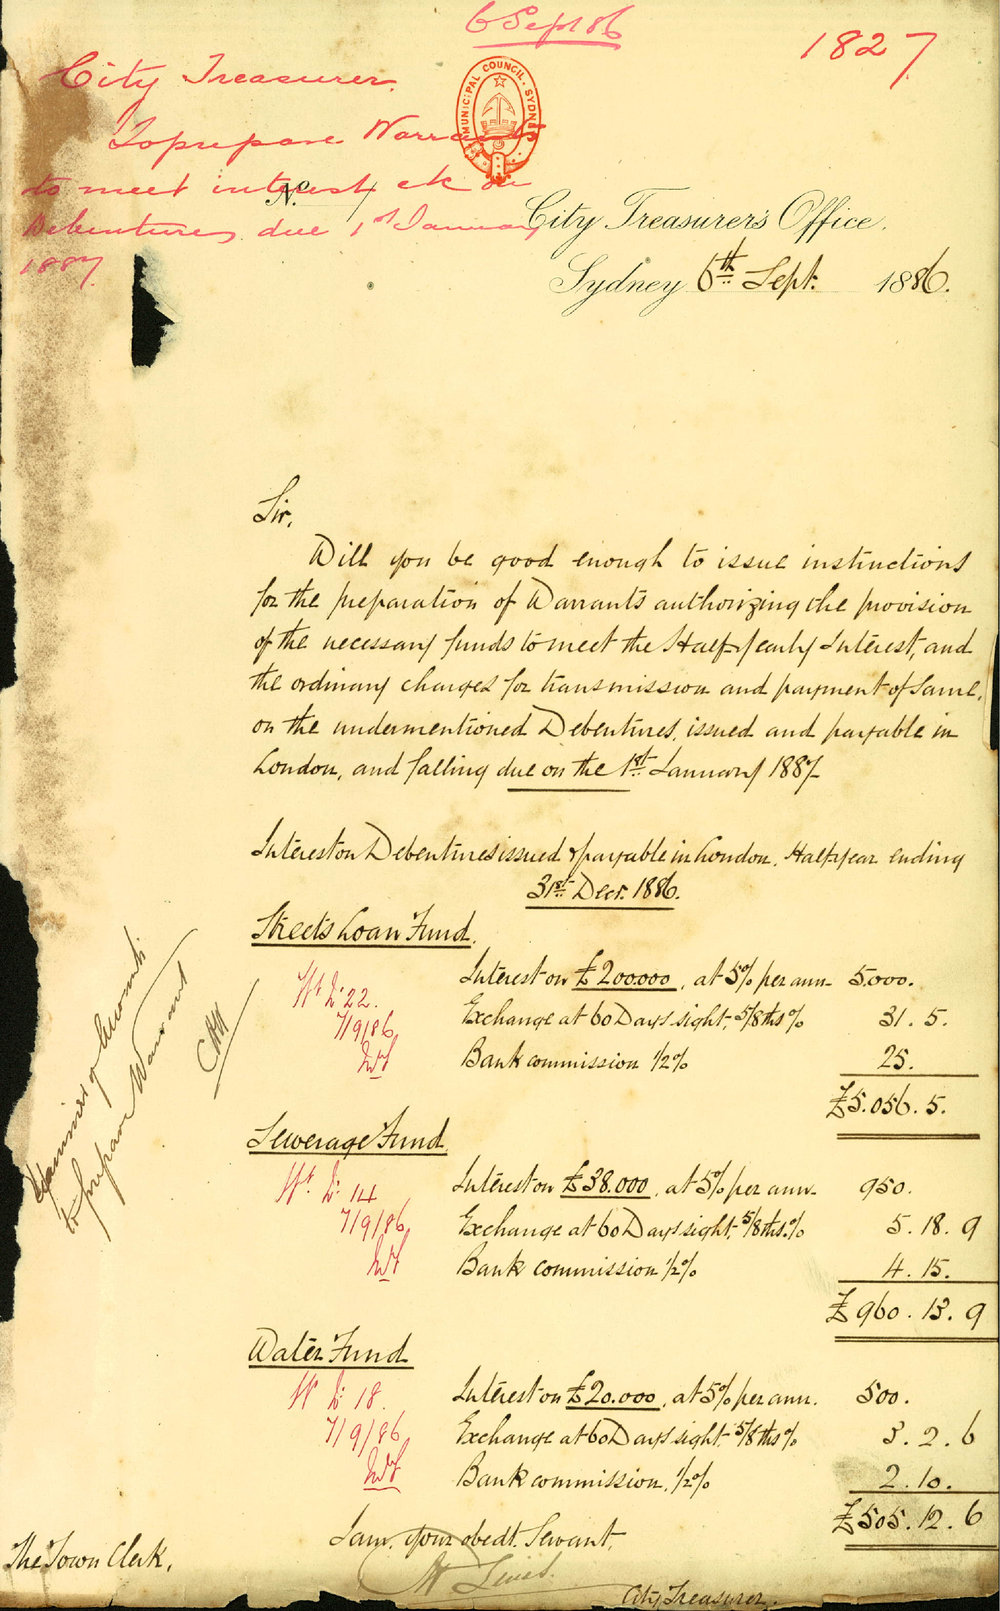 6 Sept 86
1827
City Treasurer.
To prepare Warrants
to meet interest &c on
Debentures due 1st January
1887
MUNICIPAL COUNCIL. SYDNEY
No.
City Treasurer's Office.
Sydney 6th Sept. 1886.
Sir,
Will you be good enough to issue instructions
for the preparation of Warrants authorizing the provision
of the necessary funds to meet the Half-Yearly Interest, and
the ordinary charges for transmission and payment of same,
on the undermentioned Debentures, issued and payable in
London, and falling due on the 1st January 1887
Interest on Debentures issued & payable in London, Half-year ending
31st Decr. 1886.
Streets Loan Fund.
Interest on £200.000, at 5% per ann. 5.000.
Wt 22.
Exchange at 60 Days sight, 5/8ths % 31. 5.
7/9/86
Bank commission 1/2% 25.
£5.056. 5.
Sewerage Fund
Interest on £38.000, at 5% per ann. 950.
Wt. 14
Exchange at 60 Days sight, 5/8ths % 5. 18. 9
7/9/86
Bank commission 1/2% 4. 15.
£960. 13. 9
Water Fund
Interest on £20.000, at 5% per ann. 500.
Wt 18.
Exchange at 60 Days sight, 5/8ths % 3. 2. 6
7/9/86
Bank commission, 1/2% 2. 10.
£505. 12. 6
Examiner of Accounts
to prepare Warrant
I am, Your obedt. Servant,
The Town Clerk.
City Treasurer.